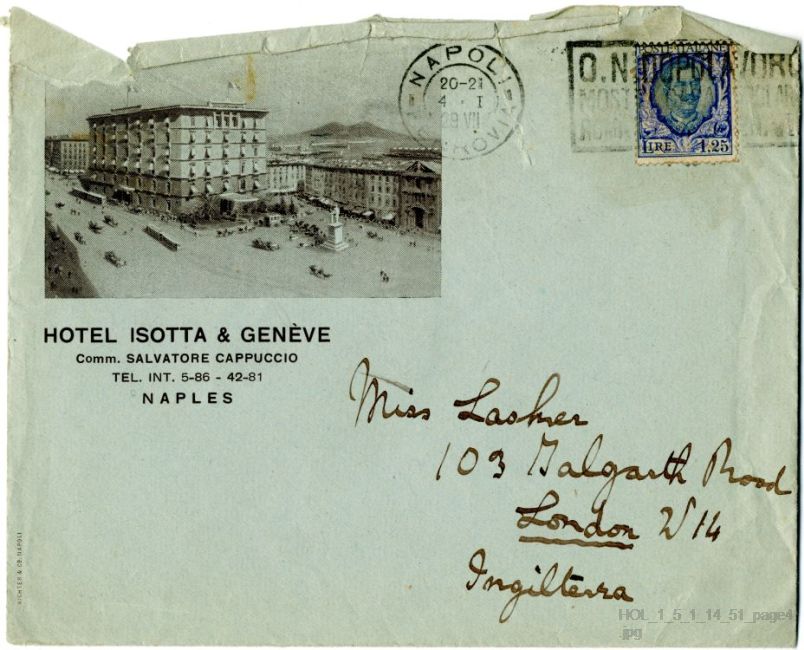 NAPOLI
20-21
4 I
29 VII
FERROVIA
POSTE ITALIANE
LIRE 1,25
HOTEL ISOTTA & GENÈVE
Comm. SALVATORE CAPPUCCIO
TEL. INT. 5-86 - 42-81
NAPLES
Miss Lasker
103 Talgarth Road
London W14
Ingilterra
RICHTER & CO. NAPOLI
HOL_1_5_1_14_51_page4
.jpg